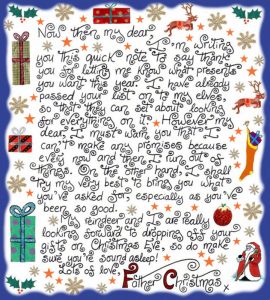 Now then my dear, I'm writing
you this quick note to say thank
you for letting me know what presents
you want this year. I have already
passed your list on to my elves,
so that they can set about looking
for everything on it. However my
dear, I must warn you that I
can't make any promises because
every now and then I run out of
things. On the other hand, I shall
try my very best to bring you what
you've asked for especially as you've
been so good.
My reindeer and I are really
looking forward to dropping off your
gifts on Christmas Eve, so do make
sure you're sound asleep!
Lots of love, Father Christmas x